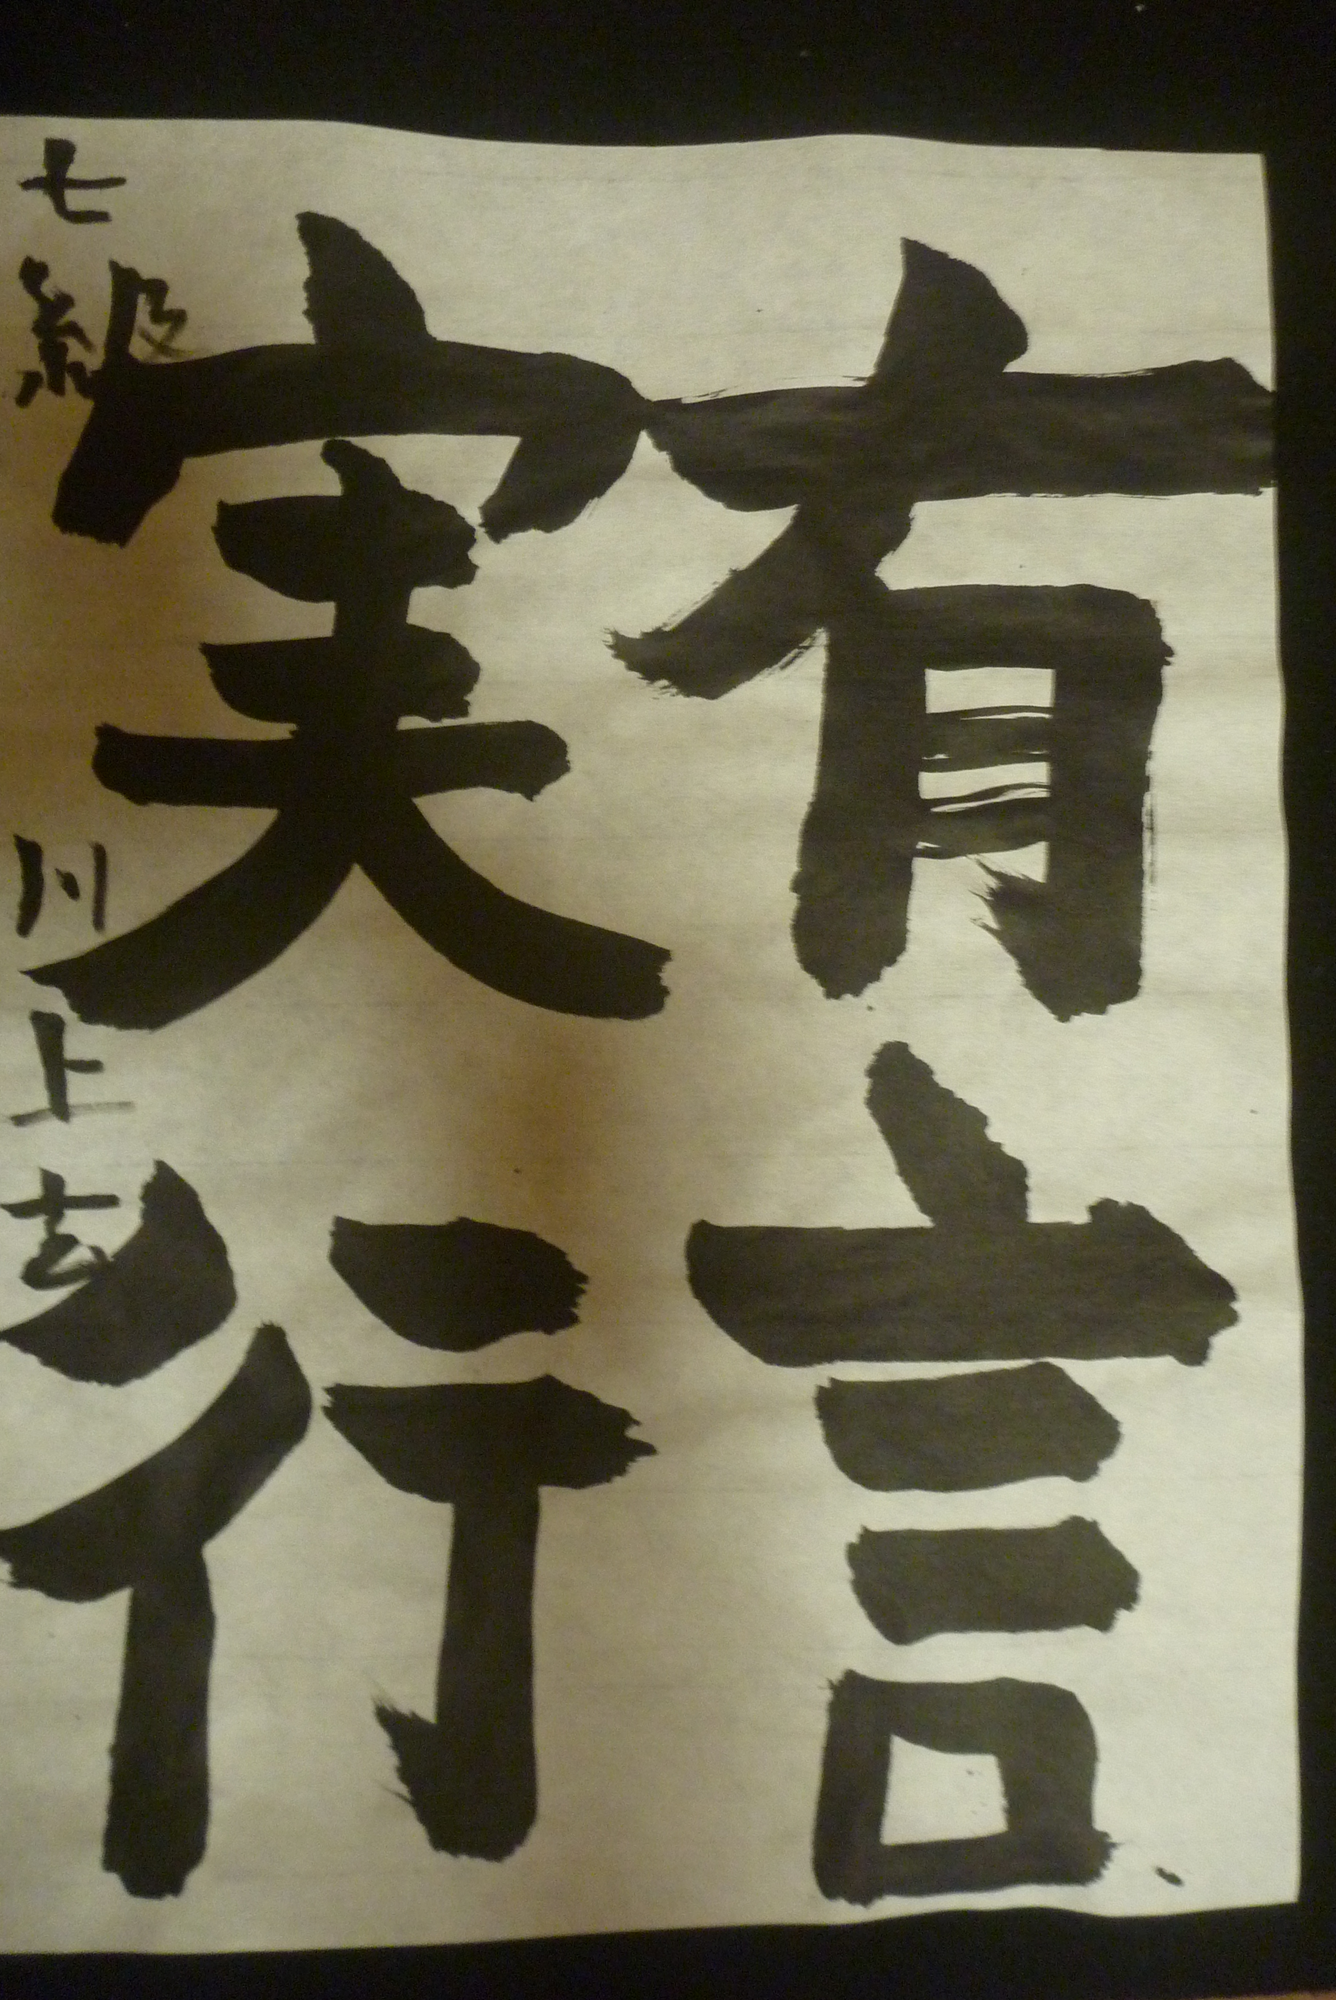 有言
実行
七級 川上